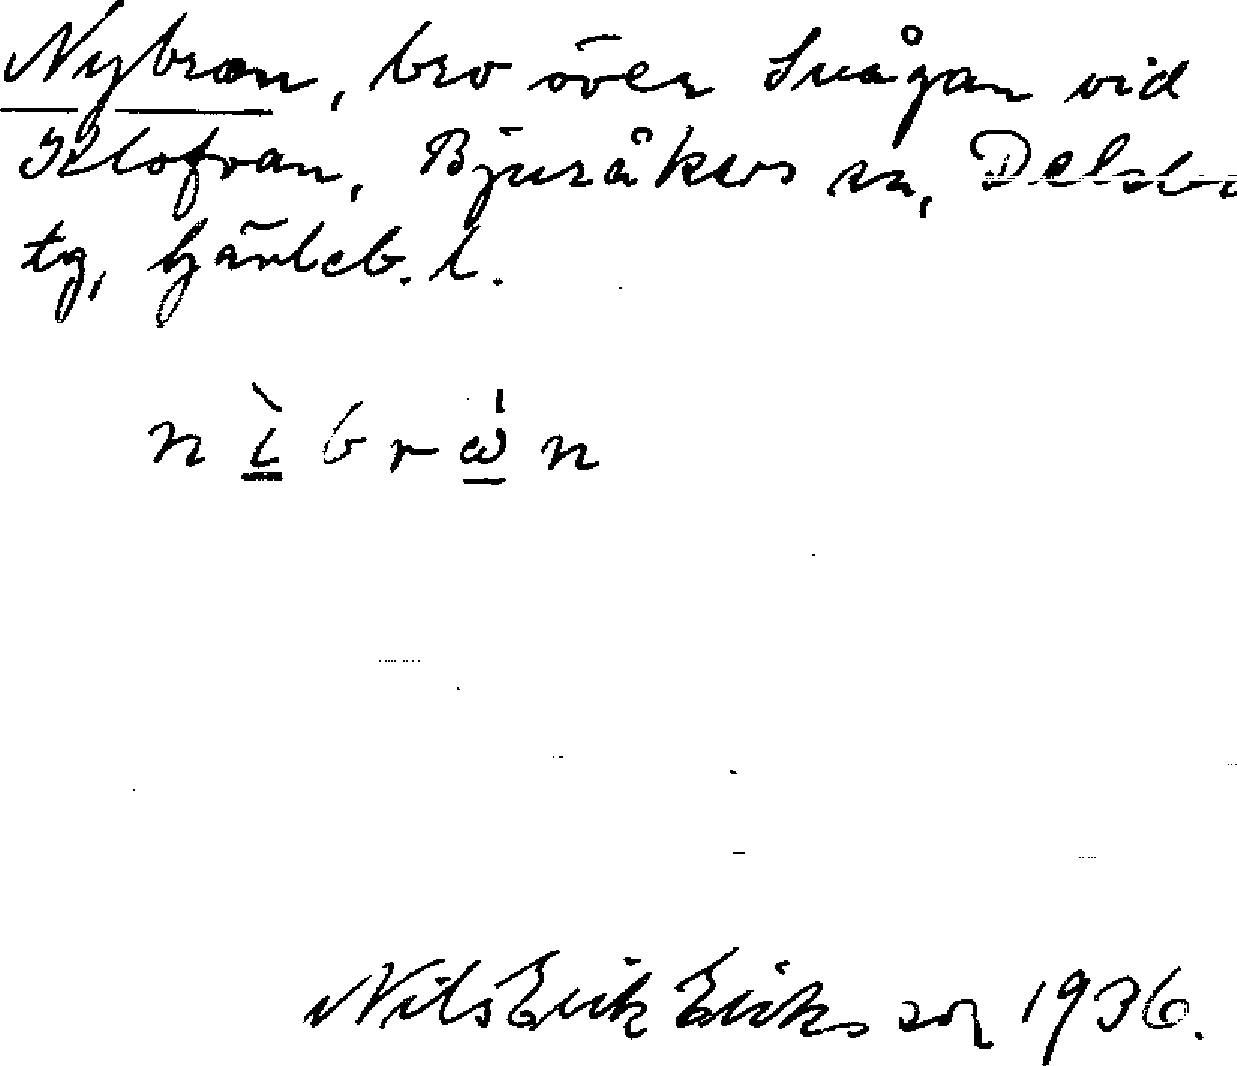 Nybron, bro över Svågan vid
Klofvan, Bjuråkers sn, Delsbo
tg, Gävleb. l.
nìbrωn
Nils Erik Eriksson 1936.